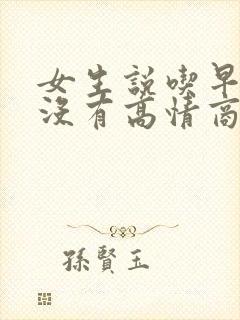 女生説喫早
沒有高情商
孫賢玉